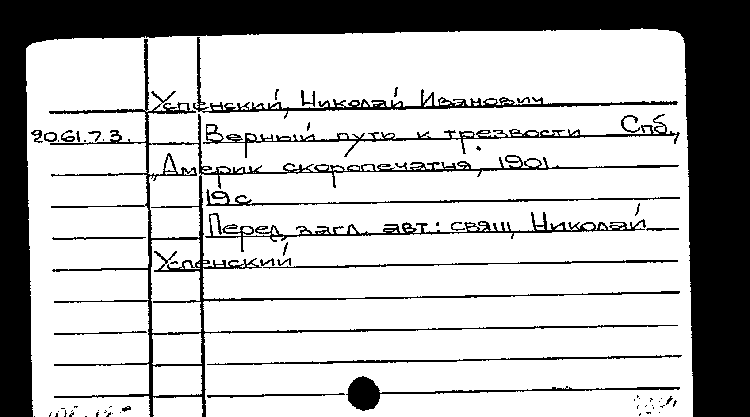 Успенский, Николай Иванович
20.61.7.3. Верный путь к трезвости Спб.,
„Америк скоропечатня", 1901.
19с
Перед загл. авт.: свящ. Николай
Успенский